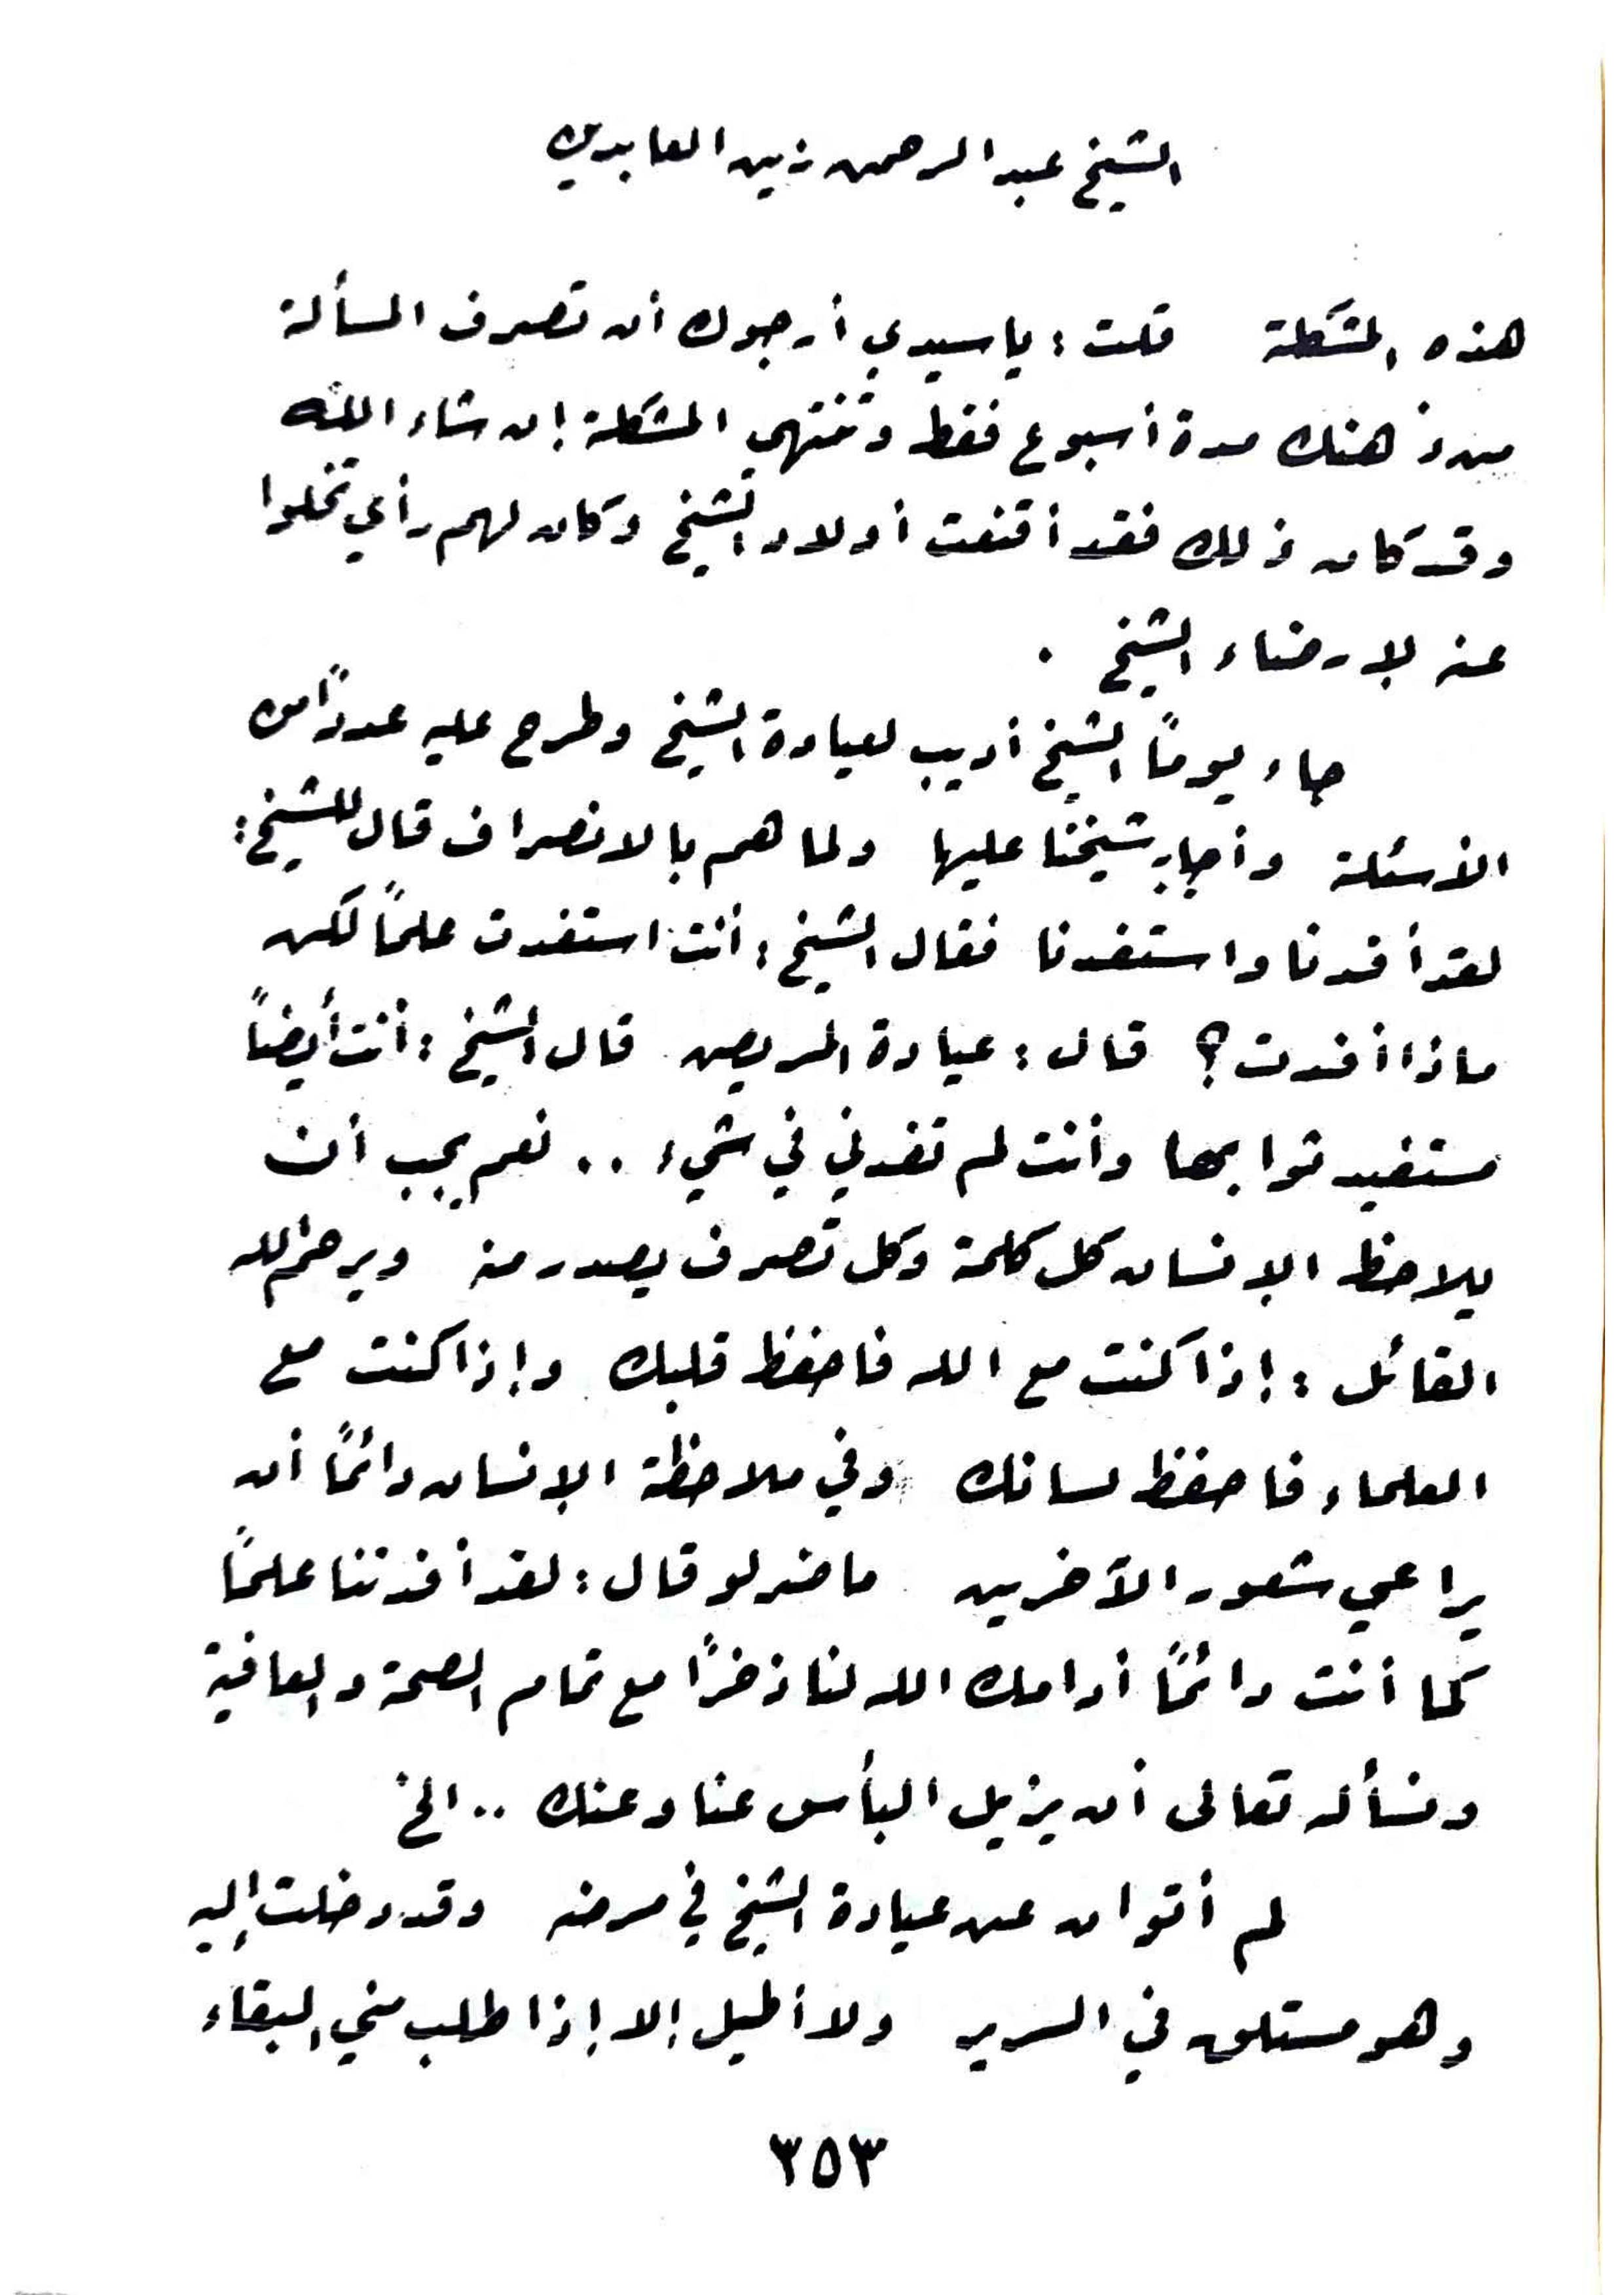 الشيخ عبد الرحمن زين العابدين
هذه المشكلة قلت : يا سيدي أرجوك أن تصرف المسألة
من ذهنك مدة أسبوع فقط وتنتهي المشكلة إن شاء الله
وقد كان ذلك فقد أقنعت أولاد الشيخ وكان لهم رأي تخلوا
عنه لإرضاء الشيخ .
جاء يوماً الشيخ أديب لعيادة الشيخ وطرح عليه عدداً من
الأسئلة وأجاب شيخنا عليها ولما هم بالانصراف قال للشيخ :
لقد أفدنا واستفدنا فقال الشيخ : أنت استفدت علماً لكن
ماذا أفدت ؟ قال : عيادة المريض قال الشيخ : أنت أيضاً
مستفيد ثوابها وأنت لم تفدني في شيء .. نعم يجب أن
يلاحظ الإنسان كل كلمة وكل تصرف يصدر منه ويرحم الله
القائل : إذا كنت مع الله فاحفظ قلبك وإذا كنت مع
العلماء فاحفظ لسانك وفي ملاحظة الإنسان دائماً أن
يراعي شعور الآخرين ما ضر لو قال : لقد أفدتنا علماً
كما أنت دائماً أدامك الله لنا ذخراً مع تمام الصحة والعافية
ونسأله تعالى أن يزيل البأس عنا وعنك .. الخ
لم أتوان عن عيادة الشيخ في مرضه وقد دخلت إليه
وهو مستلق في السرير ولا أطيل إلا إذا طلب مني البقاء
٣٥٣